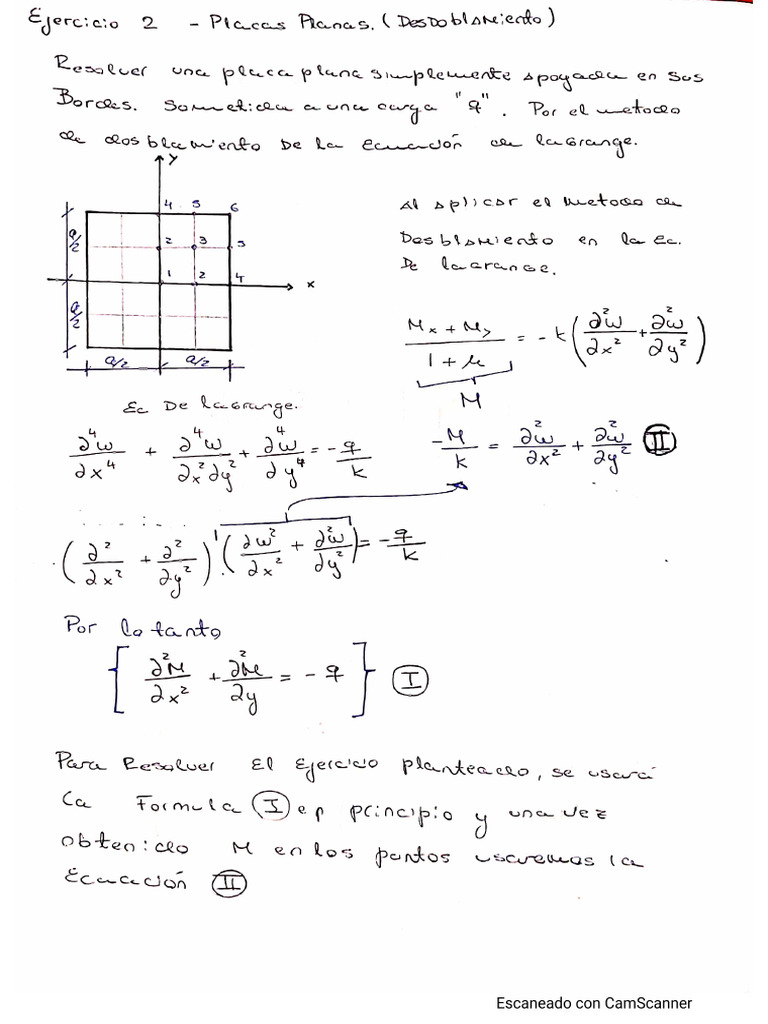 Ejercicio 2 - Placas Planas. (Desdoblamiento)
Resolver una placa plana simplemente apoyada en sus
Bordes. Sometida a una carga "q". Por el metodo
de dosblamiento De la Ecuación de lagrange.
y
4 5 6
a/2 2 3 5
1 2 4 x
a/2
a/2 a/2
Al aplicar el Metodo de
Desblamiento en la Ec.
De lagrange.
(Mx + My)/(1 + μ) = -k(∂²ω/∂x² + ∂²ω/∂y²)
M
Ec De lagrange.
∂⁴ω/∂x⁴ + ∂⁴ω/∂x²∂y² + ∂⁴ω/∂y⁴ = -q/k
-M/k = ∂²ω/∂x² + ∂²ω/∂y² II
(∂²/∂x² + ∂²/∂y²)·(∂ω²/∂x² + ∂²ω/∂y²) = -q/k
Por lo tanto
{∂²M/∂x² + ∂²M/∂y = -q} I
Para Resolver El Ejercicio planteado, se usará
la Formula I en principio y una vez
obtenido M en los puntos usaremos la
Ecuación II
Escaneado con CamScanner